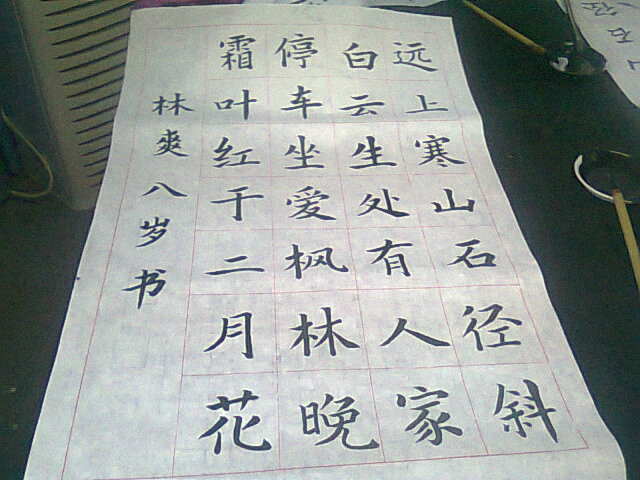 远上寒山石径斜
白云生处有人家
停车坐爱枫林晚
霜叶红于二月花
林爽八岁书
石径